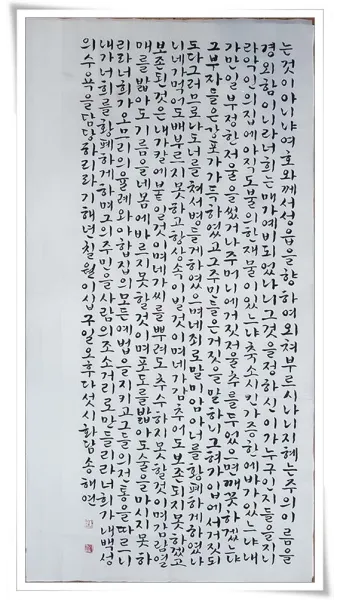 는것이아니냐여호와께서성읍을향하여외쳐부르시나니지혜는주의이름을
경외함이니라너희는매가예비되었나니그것을정하신이가누구인지들을지니
라악인의집에아직도불의한재물이있느냐축소시킨가증한에바가있느냐내
가만일부정한저울을썼거나주머니에거짓저울추를두었으면깨끗하겠느냐
그부자들은강포가가득하였고그주민들은거짓을말하니그혀가입에서거짓되
도다그러므로나도너를쳐서병들게하였으며네죄로말미암아너를황폐하게하였나
니네가먹어도배부르지못하고항상속이빌것이며네가감추어도보존되지못하겠고
보존된것은내가칼에붙일것이며네가씨를뿌려도추수하지못할것이며감람열
매를밟아도기름을네몸에바르지못할것이며포도를밟아도술을마시지못하
리라너희가오므리의율례와아합집의모든예법을지키고그들의전통을따르니
내가너희를황폐하게하며그의주민을사람의조소거리로만들리라너희가내백성
의수욕을담당하리라기해년칠월이십구일오후다섯시화담송해연